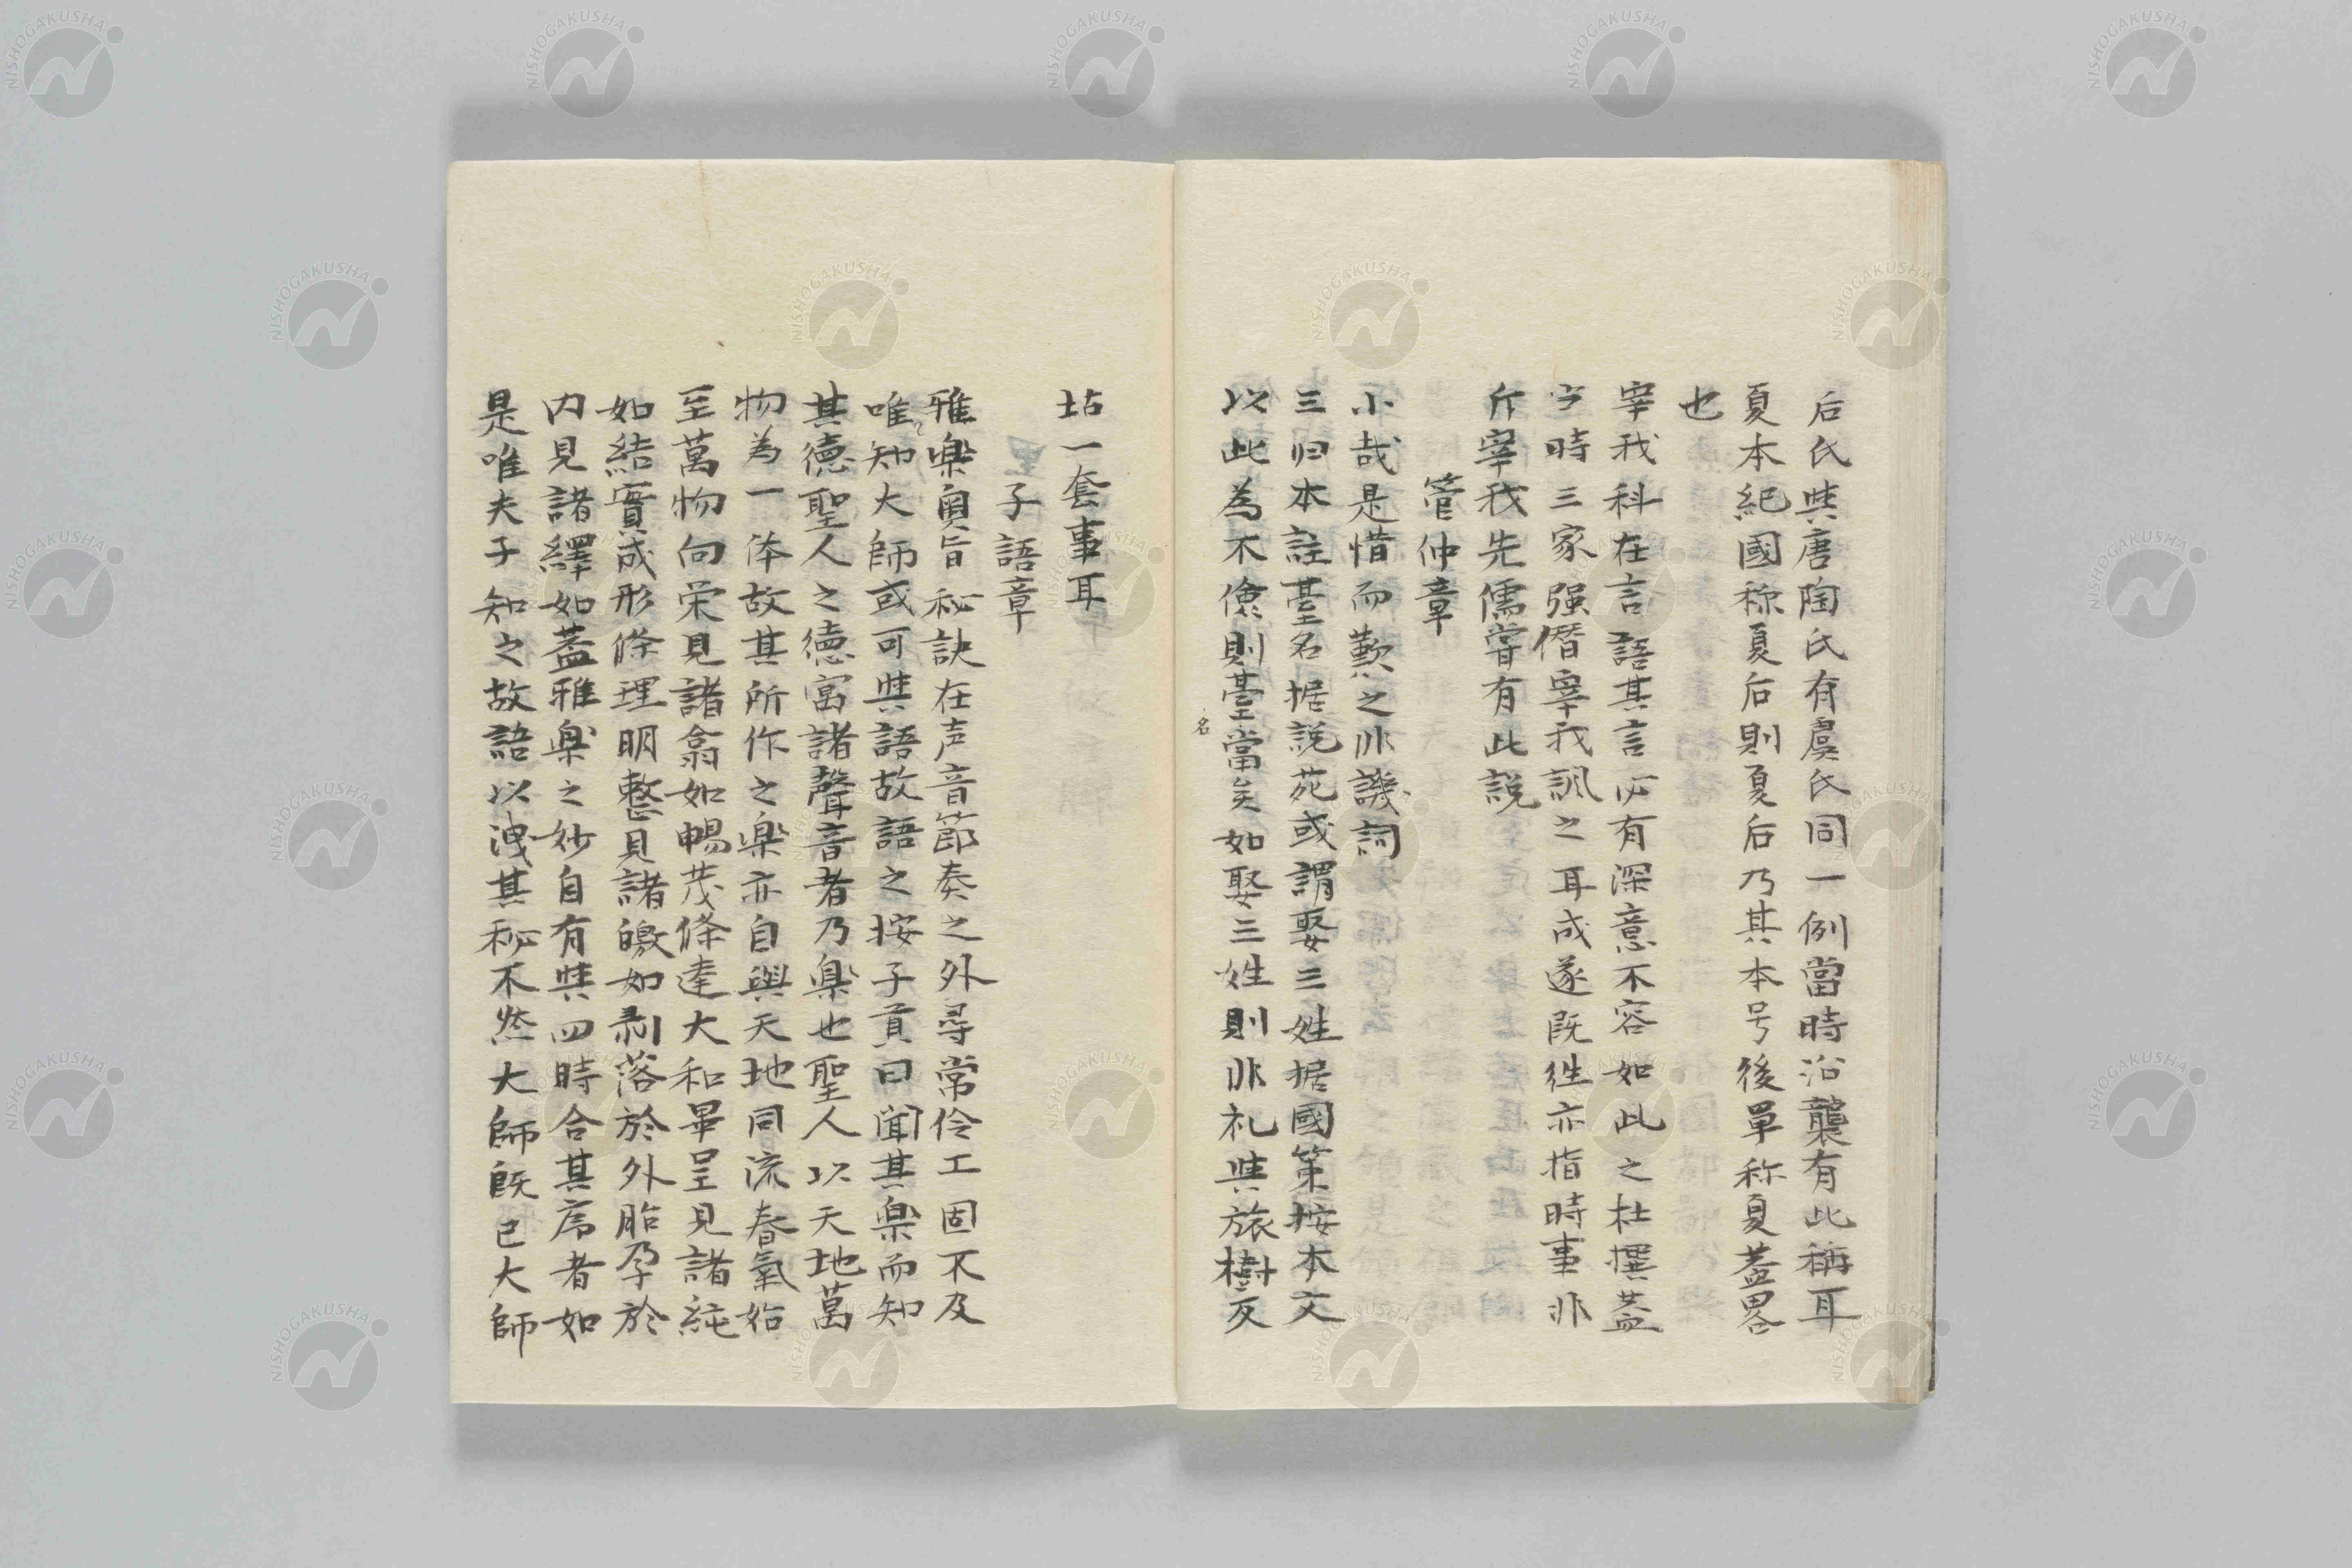 后氏與唐陶氏有虞氏同一例當時沿襲有此稱耳
夏本紀國称夏后則夏后乃其本号後單称夏蓋畧
也
宰我科在言語其言必有深意不容如此之杜撰蓋
當時三家强僭宰我諷之耳成遂既徃亦指時事非
斥宰我先儒嘗有此説
管仲章
小哉是惜而歎之非譏詞
三归本註臺名据説苑或謂娶三姓据國策按本文
以此為不儉則臺名當矣如娶三姓則非礼與旅樹反
坫一套事耳
子語章
雅楽奥旨秘訣在声音節奏之外尋常伶工固不及
唯知大師或可與語故語之按子貢曰聞其楽而知
其徳聖人之徳寓諸聲音者乃楽也聖人以天地萬
物為一体故其所作之楽亦自與天地同流春氣始
至萬物向栄見諸翕如暢茂條達大和畢呈見諸純
如結實成形條理明整見諸皦如剥落於外胎孕於
内見諸繹如蓋雅楽之妙自有與四時合其序者如
是唯夫子知之故語以洩其秘不然大師既已大師
NISHOGAKUSHA